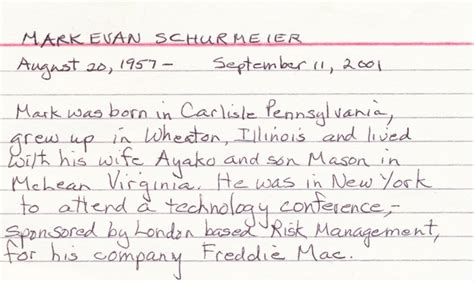 MARK EVAN SCHURMEIER
August 20, 1957 - September 11, 2001
Mark was born in Carlisle Pennsylvania,
grew up in Wheaton, Illinois and lived
with his wife Ayako and son Mason in
McLean Virginia. He was in New York
to attend a technology conference,-
sponsored by London based Risk Management,
for his company Freddie Mac.